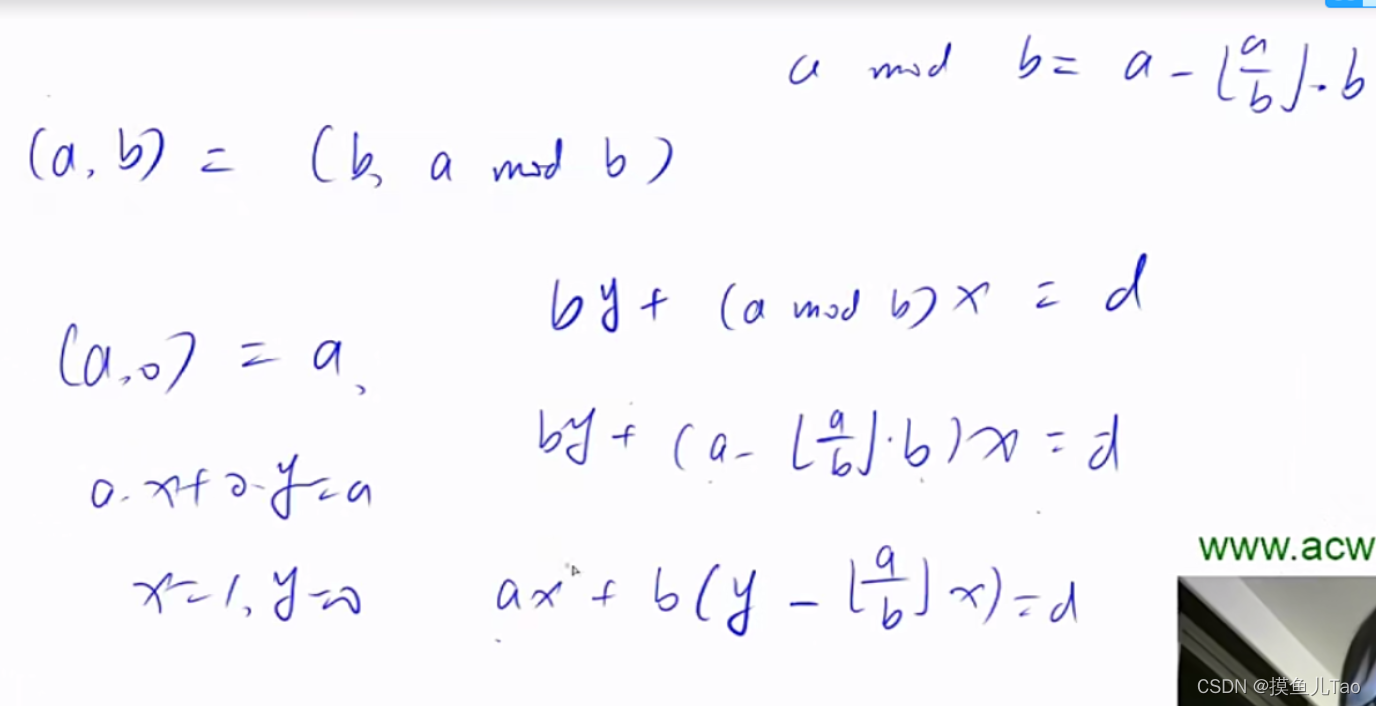 a mod b = a - ⌊a/b⌋·b
(a, b) = (b, a mod b)
by + (a mod b)x = d
(a, 0) = a,
by + (a - ⌊a/b⌋·b)x = d
a·x+0·y=a
x=1, y=0
ax + b(y - ⌊a/b⌋x) = d
www.acw
CSDN @摸鱼儿Tao